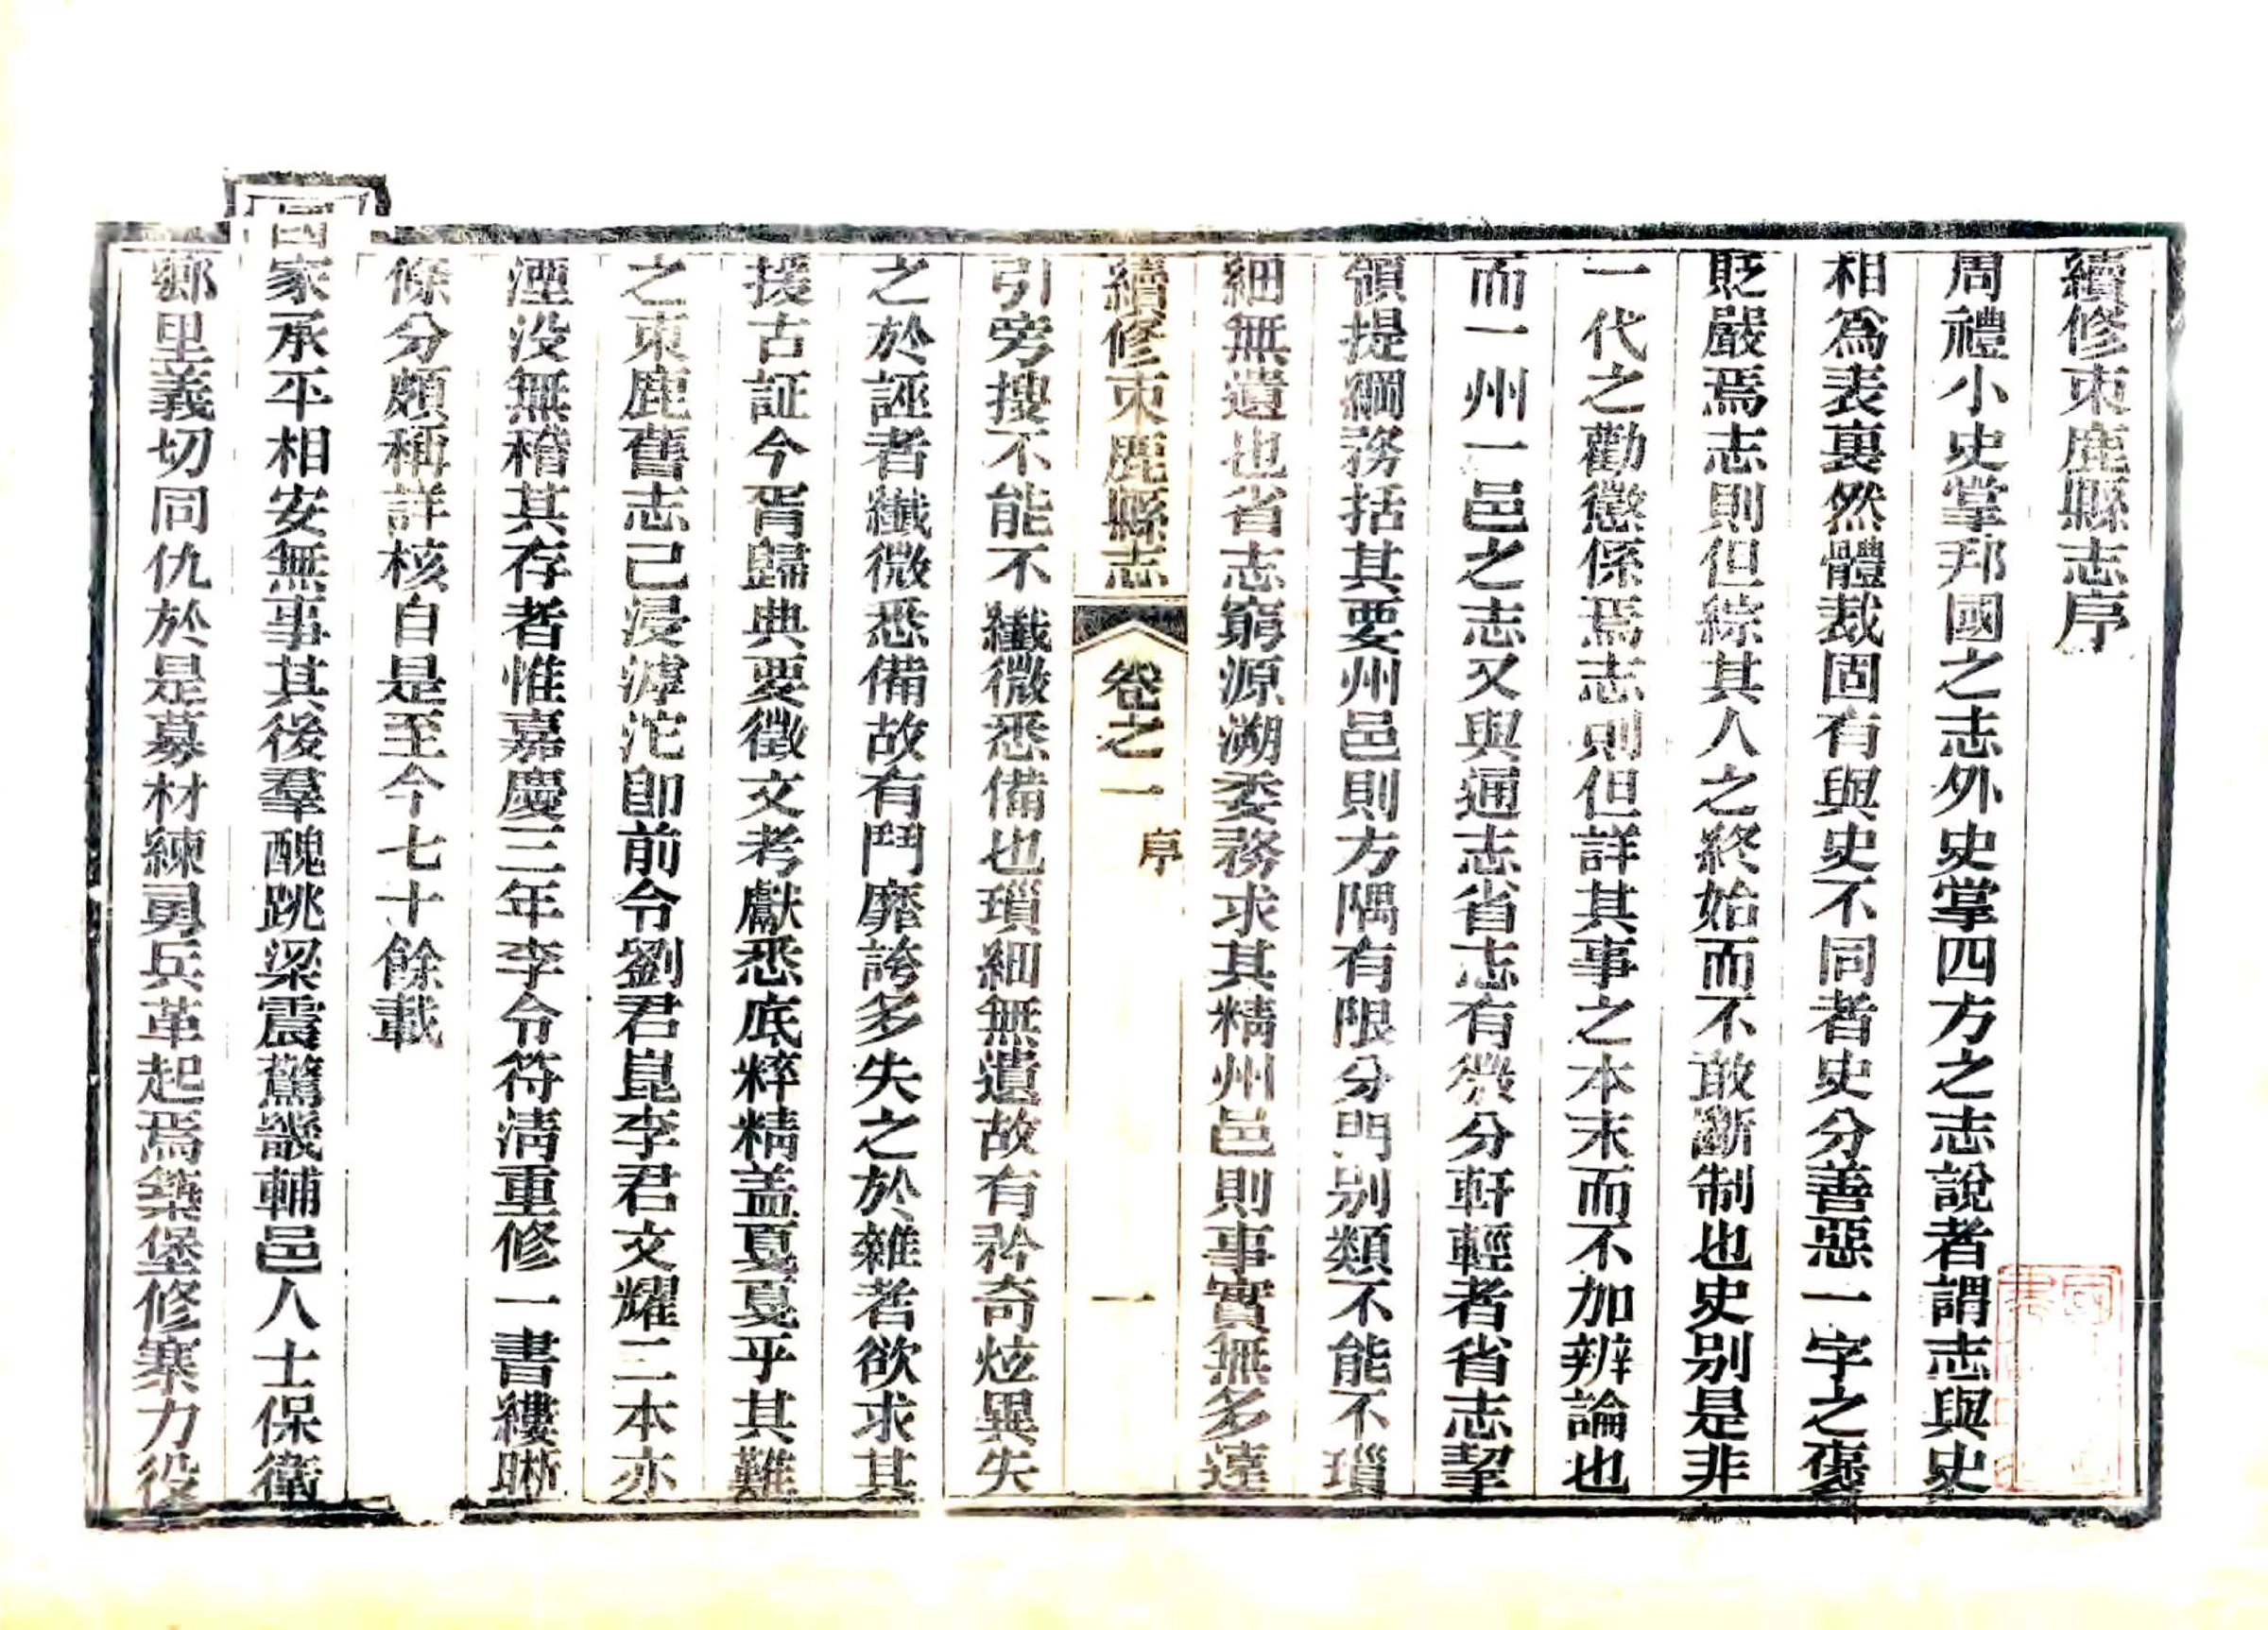 續修束鹿縣志序
周禮小史掌邦國之志外史掌四方之志說者謂志與史
相爲表裏然體裁固有與史不同者史分善惡一字之褒
貶嚴焉志則但綜其人之終始而不敢斷制也史别是非
一代之勸懲係焉志則但詳其事之本末而不加辨論也
而一州一邑之志又與通志省志有微分軒輕者省志挈
領提綱務括其要州邑則方隅有限分門别類不能不瑣
細無遺也省志窮源溯委務求其精州邑則事實無多遠
續修束鹿縣志
卷之一
序
一
引旁搜不能不纖微悉備也瑣細無遺故有矜奇炫異失
之於誣者纖微悉備故有鬥靡誇多失之於雜者欲求其
援古証今胥歸典要徵文考獻悉底粹精盖戛戛乎其難
之束鹿舊志己浸滹沱卽前令劉君崑李君文耀二本亦
湮没無稽其存者惟嘉慶三年李令符清重修一書縷晰
條分頗稱詳核自是至今七十餘載
國家承平相安無事其後羣醜跳梁震驚畿輔邑人士保衛
鄉里義切同仇於是募材練勇兵革起焉築堡修寨力役